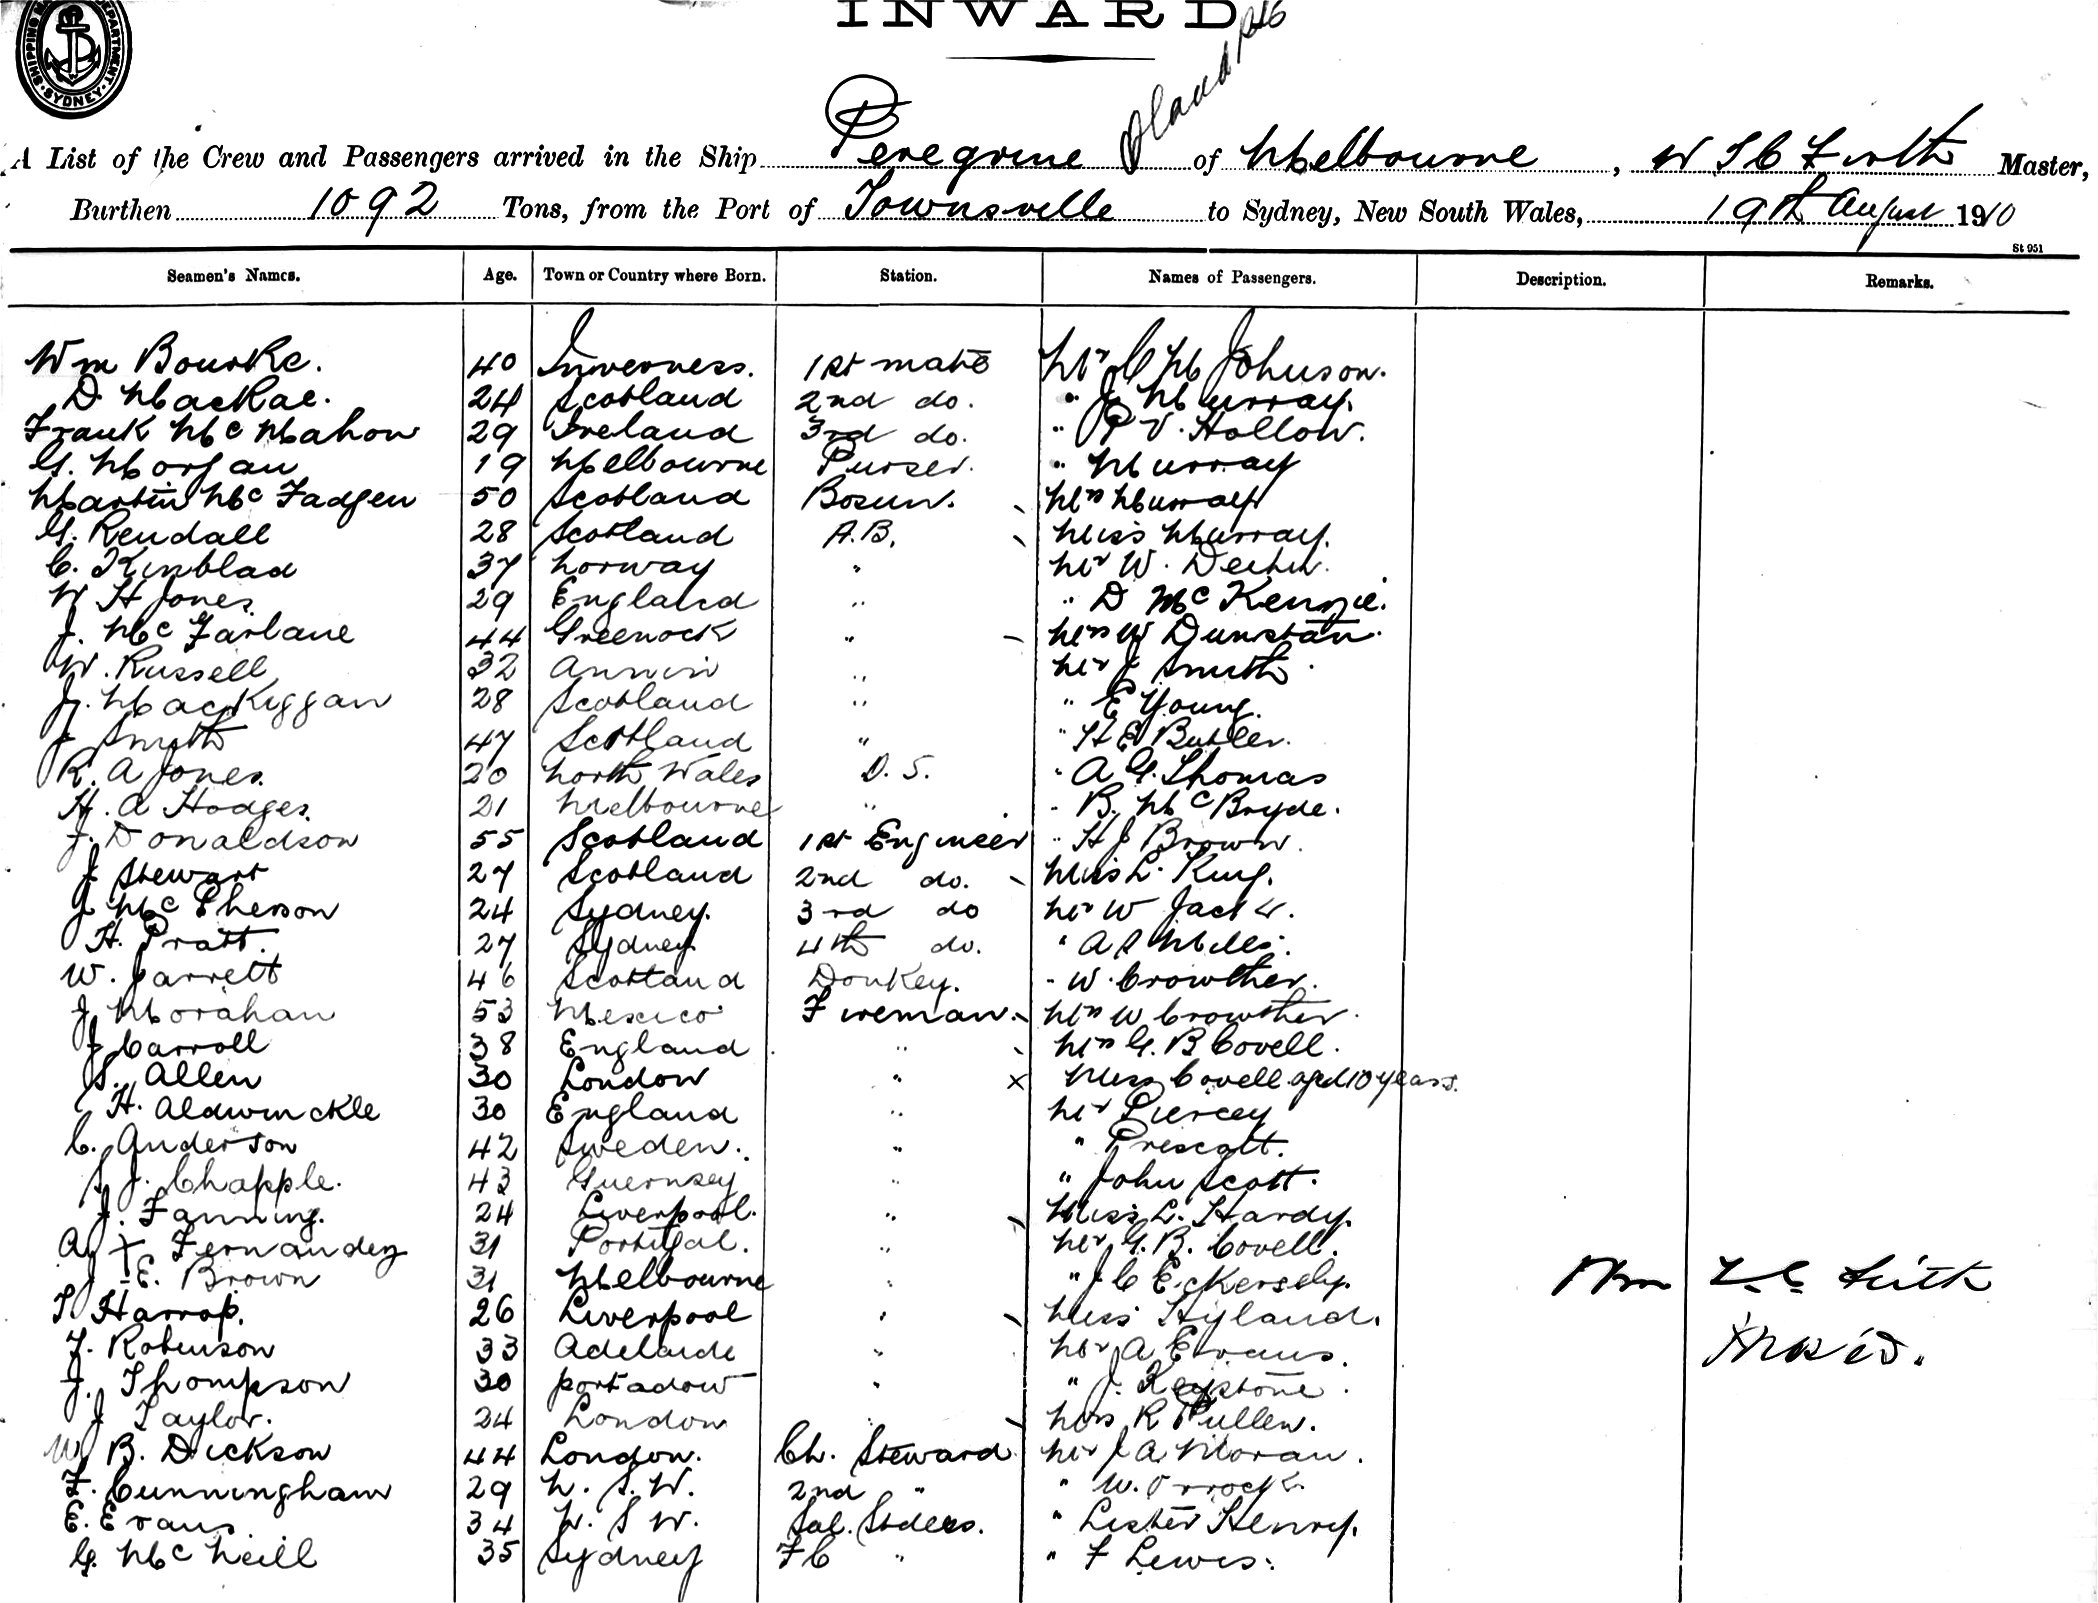 INWARD
SHIPPING DEPARTMENT SYDNEY
A List of the Crew and Passengers arrived in the Ship Peregrine of Melbourne, Master,
Burthen 1092 Tons, from the Port of Townsville to Sydney, New South Wales, 19th August 1910
St 951
Seamen's Names. Age. Town or Country where Born. Station. Names of Passengers. Description. Remarks.
Wm Bourke. 40 Inverness. 1st mate Mr C M Johnson.
D MacRae. 24 Scotland 2nd do. " J Murray.
Frank McMahon 29 Ireland 3rd do. " P V. Hollow.
G. Morgan 19 Melbourne Purser. " Murray
Martin McFadgen 50 Scotland Bosun. Mrs Murray
G. Rendall 28 Scotland A.B. Miss Murray.
C. Kinblad 37 Norway " Mr W.
W H Jones. 29 England " " D McKenzie.
J. McFarlane 44 Greenock " Mrs W Dunstan.
W. Russell 32 Annin " Mr J Smith
J. MacKiggan 28 Scotland " " E Young.
J Smyth 47 Scotland " " H E Butler.
R. A Jones. 20 North Wales O.S. " A G. Thomas
H. A Hodges. 21 Melbourne " " B. McBryde.
J. Donaldson 55 Scotland 1st Engineer " H J Brown.
J Stewart 27 Scotland 2nd do. Miss L. King.
J McPherson 24 Sydney. 3rd do Mr W Jack
H. Pratt. 27 Sydney. 4th do. " A S Mills.
W. Jarrett 46 Scotland Donkey. " W. Crowther.
J Morahan 53 Mexico Fireman. Mrs W Crowther.
J Carroll 38 England " Mrs G. B Covell.
S. Allen 30 London " x Miss Covell aged 10 years.
H. Aldwinckle 30 England " Mr Piercey
C. Anderson 42 Sweden. " " Prescott.
S J. Chapple. 43 Guernsey " " John Scott.
J. Fanning. 24 Liverpool. " Miss L. Hardy.
A Fernandez 31 Portugal. " Mr G. B. Covell.
J E. Brown 31 Melbourne " " J C Eckersley.
T Harrop. 26 Liverpool " Miss Hyland.
F. Robinson 33 Adelaide " Mr A Evans.
J. Thompson 30 portadow " " J. Keystone.
J Taylor. 24 London " Mrs R Pullen.
W B. Dickson 44 London. Ch. Steward Mr J A Moran.
F. Cunningham 29 N. S. W. 2nd " " W. Orrock.
E. Evans 34 N. S W. Sal. " Lister Henry.
G. McNeill 35 Sydney FC " " F Lewis.